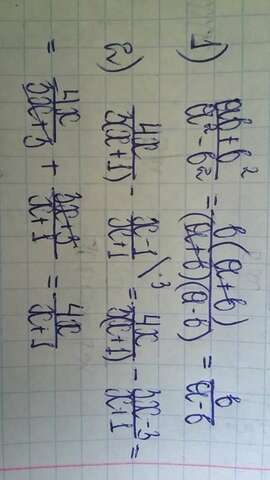 1) (ab+b²)/(a²-b²) = b(a+b)/((a+b)(a-b)) = b/(a-b)
2) 4x/(3(x+1)) - (x-1)/(x+1) \·3 = 4x/(3(x+1)) - (3x-3)/(x+1) =
= 4x/(3x+3) + (3x+3)/(x+1) = 4x/(x+1)